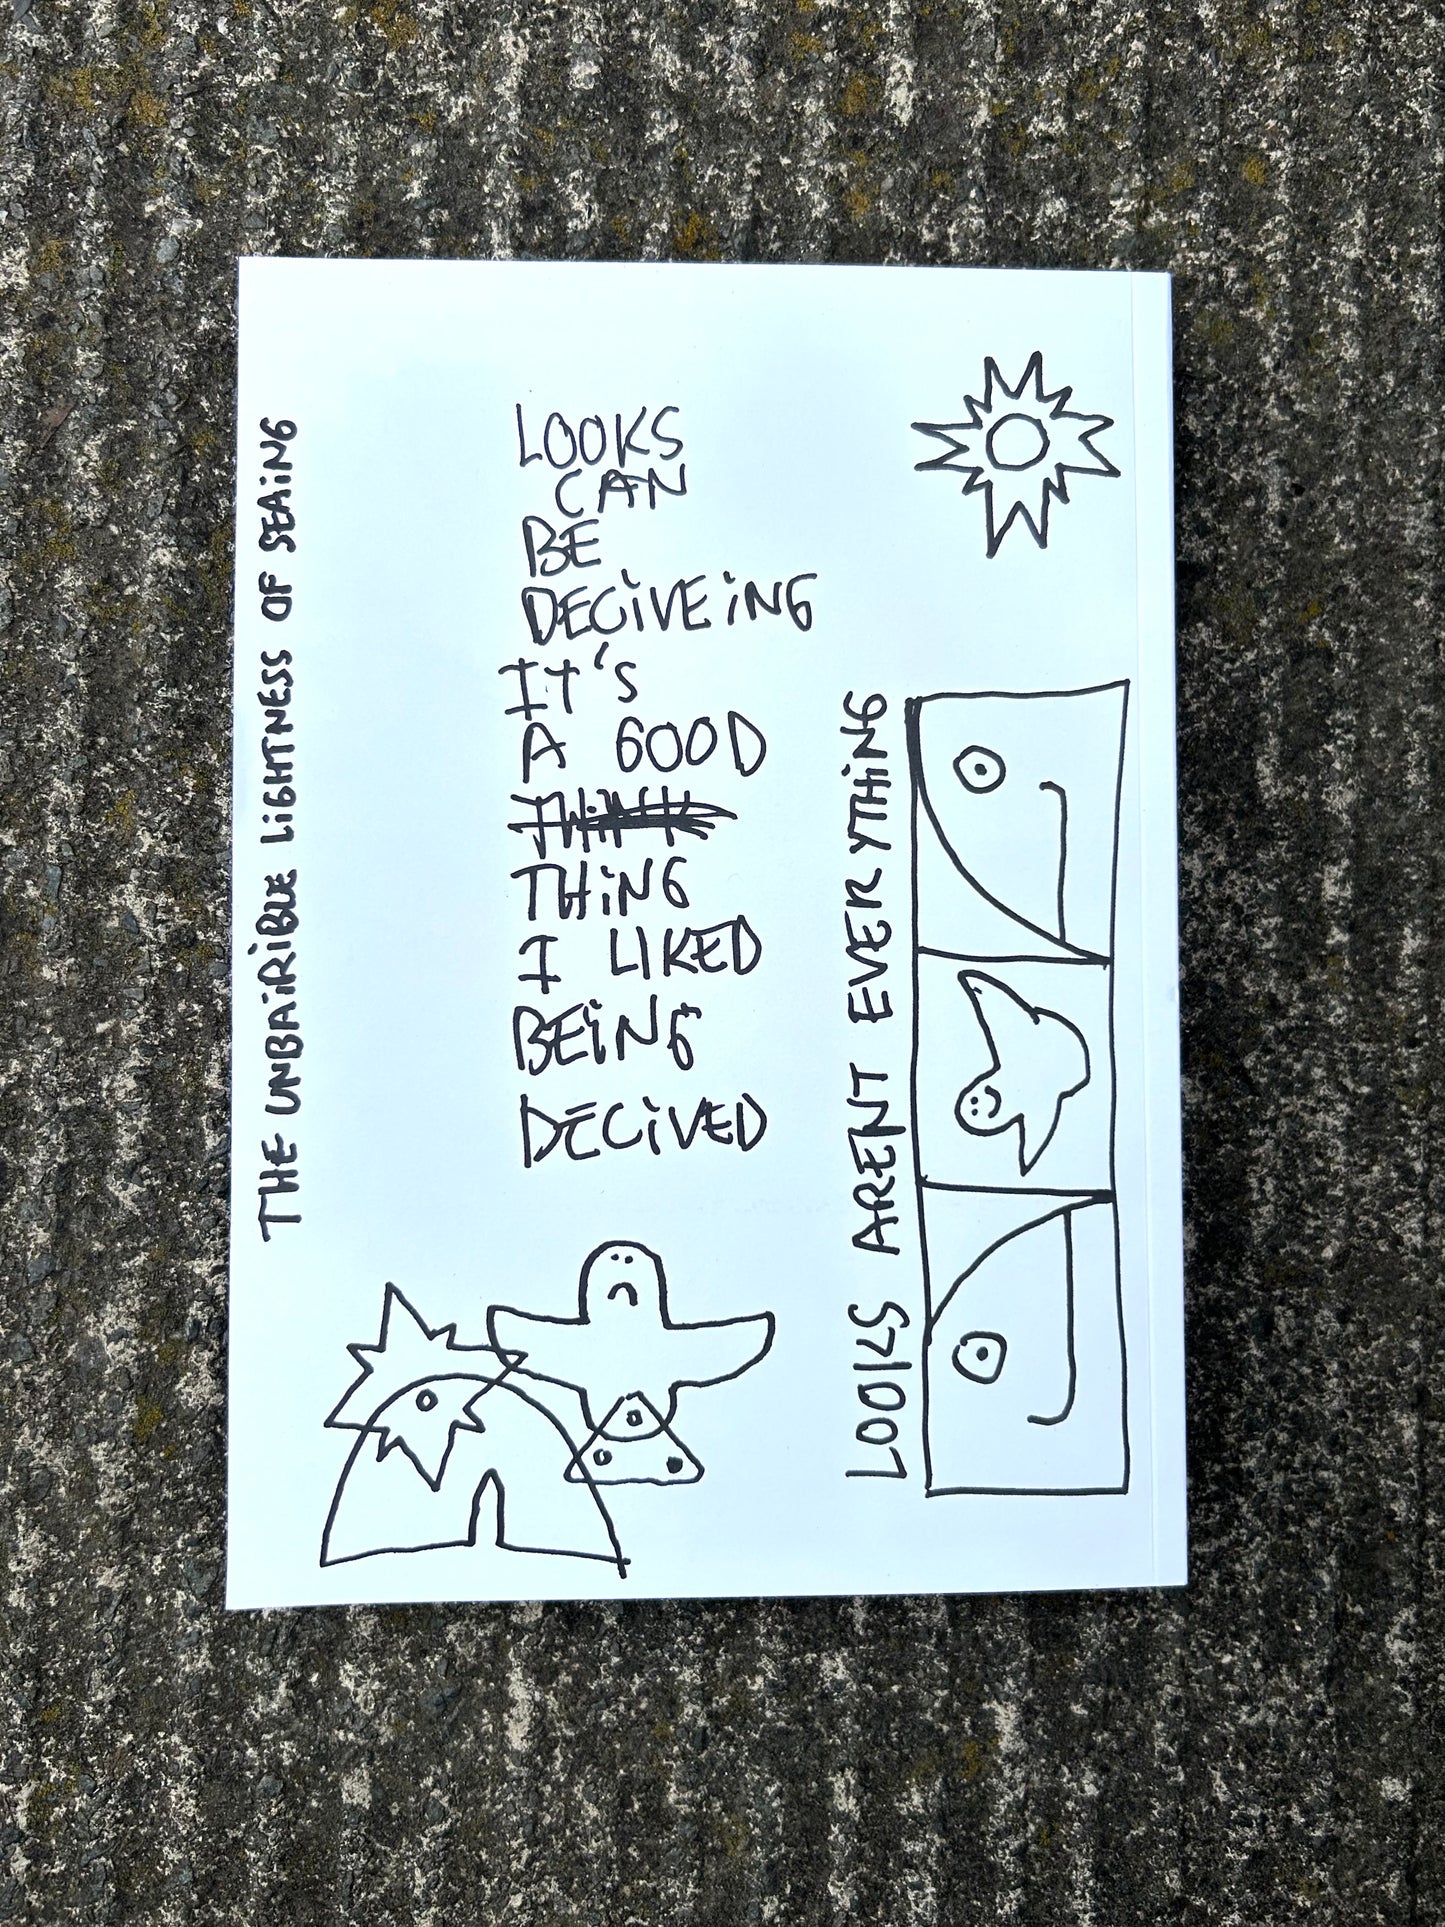 THE UNBAiRiBLE LiGHTNESS OF SEAiNG
LOOKS
CAN
BE
DECiVEiNG
It's
A GOOD
THiNG
I LIKED
BEiNG
DECiVED
LOOKS ARENT EVERYTHiNG